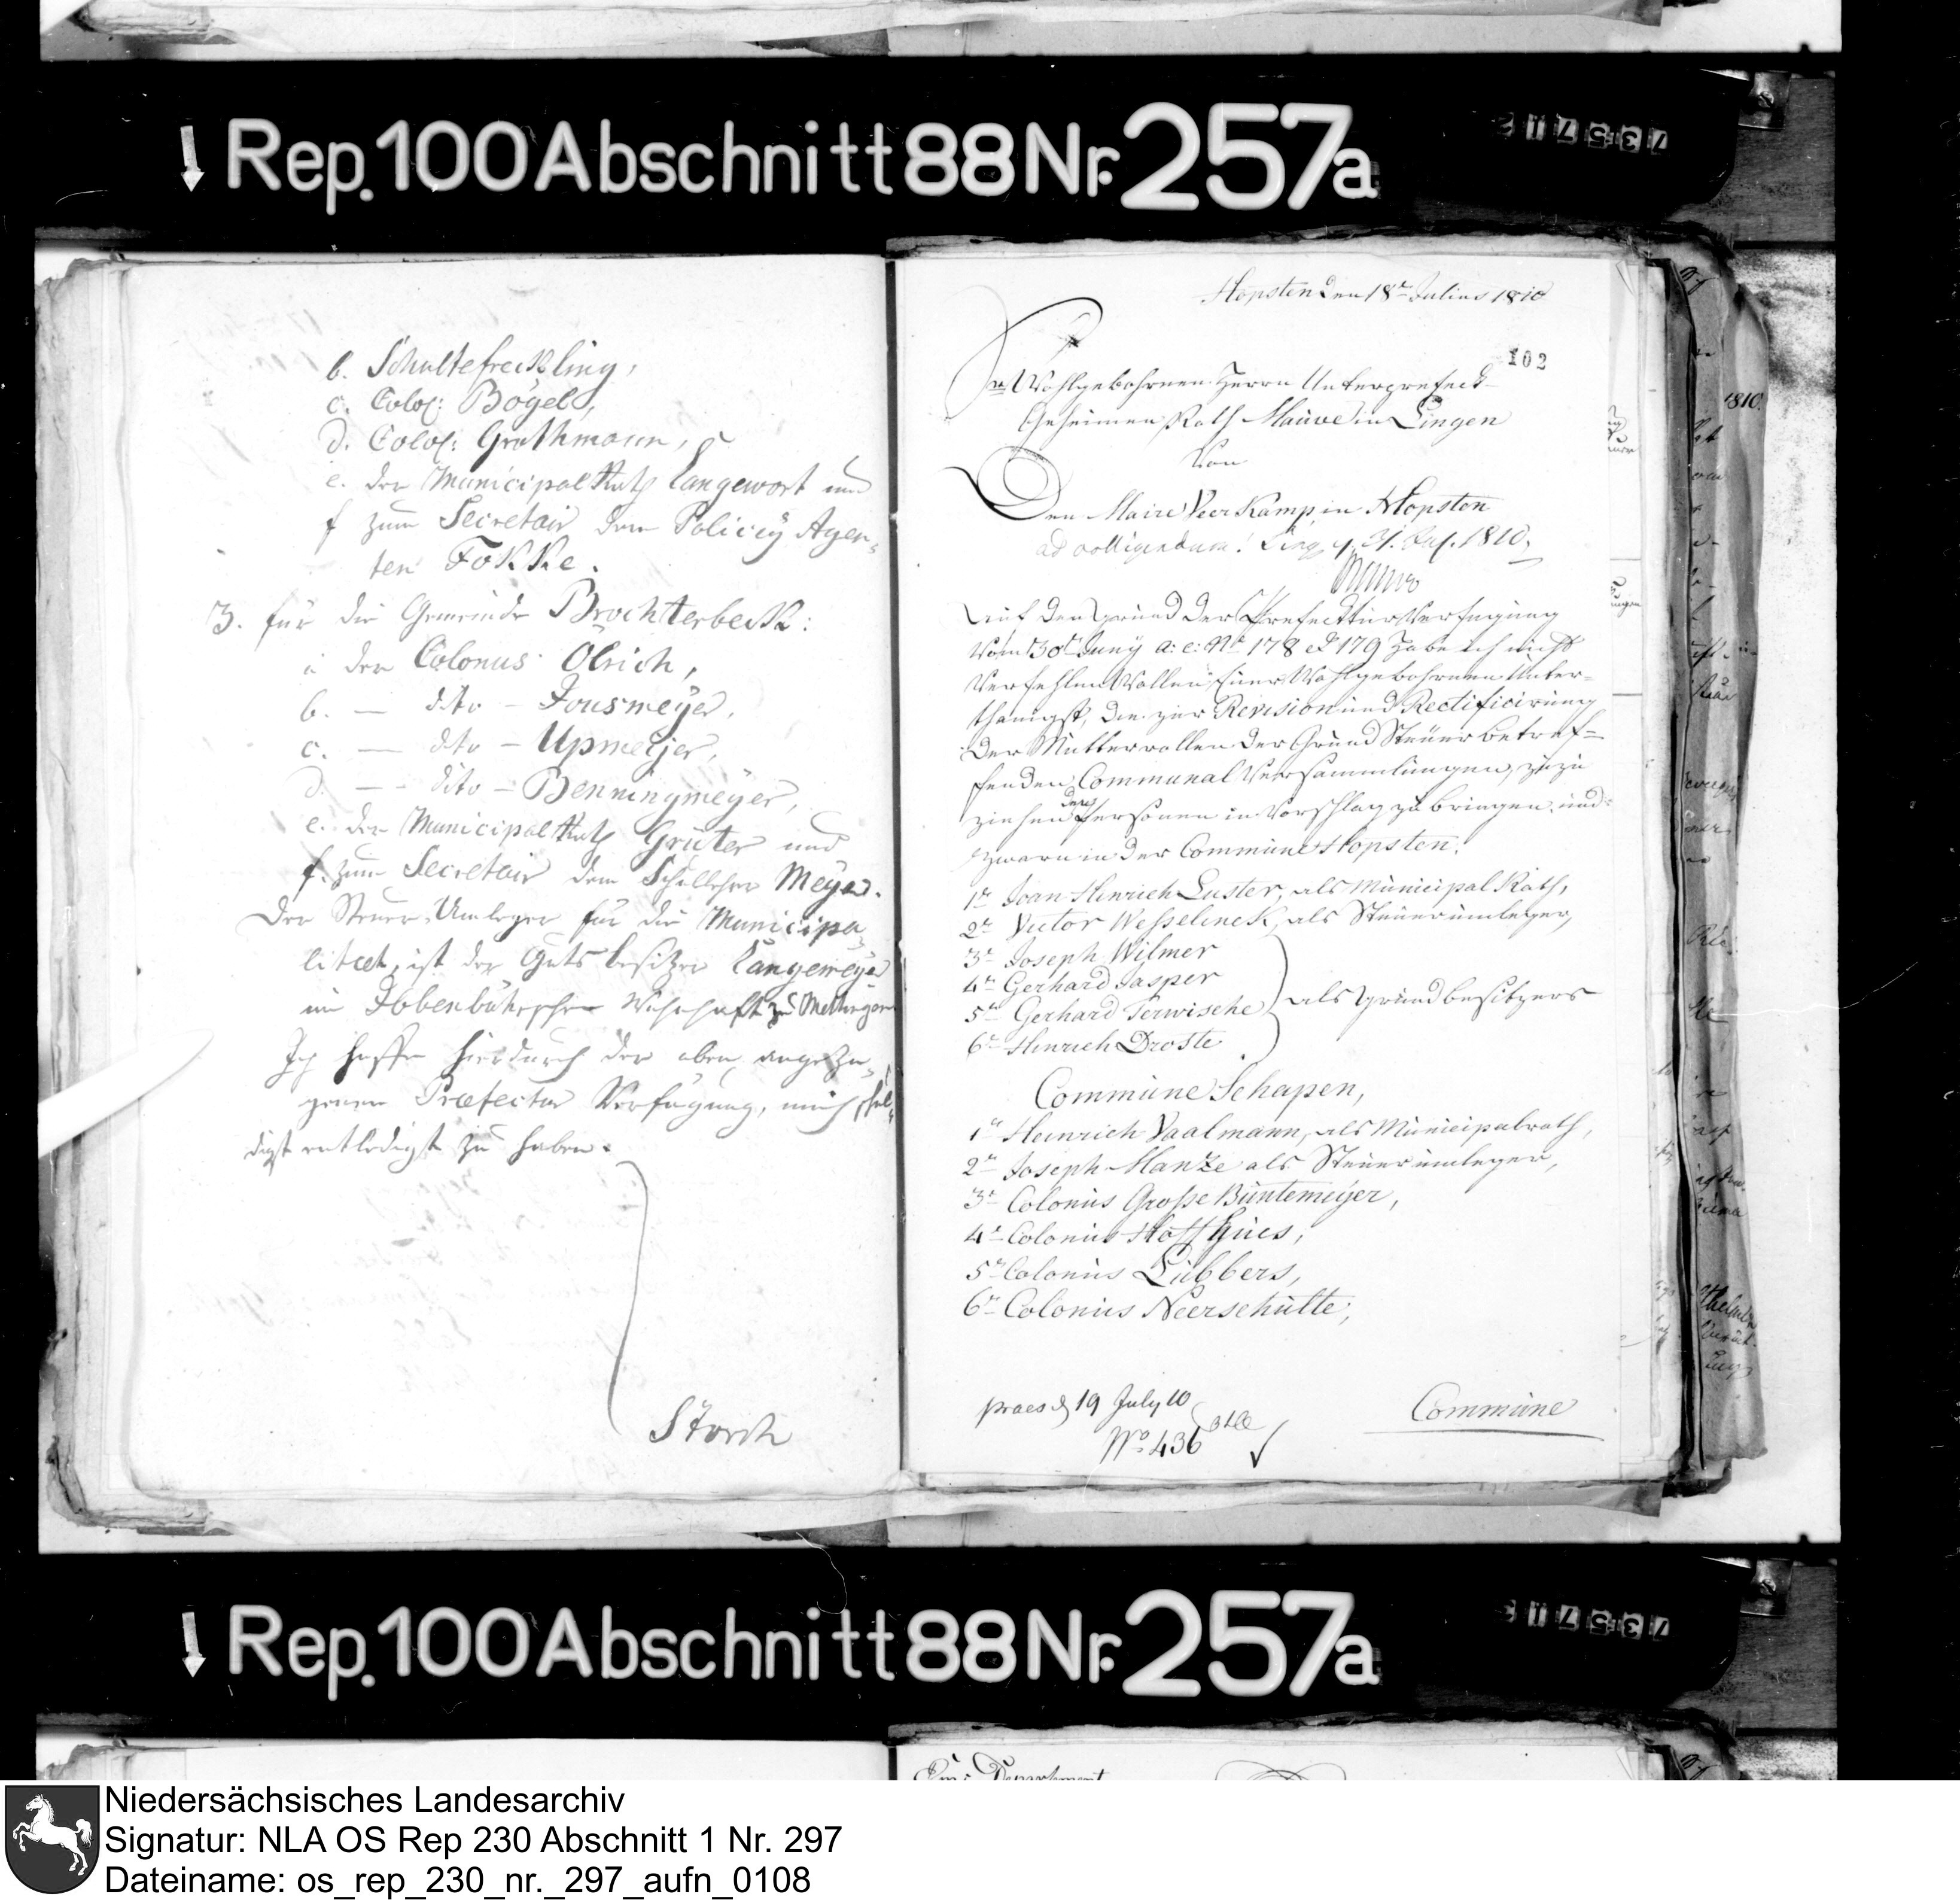 Rep. 100 Abschnitt 88 Nr. 257a
b. Schultefreckling,
c. Colo: Bögel,
d. Colo: Grothmann,
e. der Municipal Rath Langewort und
f zum Secretair dem Policey Agen-
ten Fokke.
3. für die Gemeinde Brochterbeck:
a der Colonus Ölrich,
b. — dito — Fousmeyer,
c. — dito — Upmeyer,
d. — dito — Benningmeyer,
e. der Municipal Rath Grüter und
f. zum Secretair dem Schullehrer Meyer.
Der Steuer-Umleger für die Municipa-
litaet, ist der Gutsbesitzer Langemeyer
in Ibbenbührschen zu Mettingen
Ich hoffe hierdurch der oben angezo-
genen Praefectur Verfügung, mich schul-
digst entledigt zu haben.
Storch
Hopsten den 18t Julius 1810
102
Wohlgebohrnen Herrn Unterprefect
Geheimen Rath Mauve in Lingen
Von
Den Maire Veerkamp in Hopsten
ad colligendum! Ling. 21. Jul. 1810.
Mauve
Auf den Grund der Prefecktur Verfugung
Vom 30t Juny a: c: No 178 et 179 habe ich nicht
Verfehlen Wollen Euer Wohlgebohrnen Unter-
thänigst, die zur Revision und Rectificirung
Der Mutterrollen der Grund Steuer betref-
fenden Communal Versammlungen, zuzu
ziehenden Personen in Vorschlag zu bringen. und
zwarn in der Commune Hopsten.
1t Joan Hinrich Luster, als Municipal Rath,
2t Victor Wesselinck, als Steuerumleger,
3t Joseph Wilmer
4t Gerhard Jasper
5t Gerhard Terwische
als Grundbesitzers
6t Hinrich Droste
Commune Schapen,
1t Heinrich Vaalmann, als Municipalrath,
2t Joseph Manze als Steuerumleger,
3t Colonus Große Buntemeyer,
4t Colonus Hoffhues,
5t Colonus Lübbers,
6t Colonus Neerschulte,
praes d 19 July 10
No 436
Commune
1810
Rep. 100 Abschnitt 88 Nr. 257a
Ems Departement
Niedersächsisches Landesarchiv
Signatur: NLA OS Rep 230 Abschnitt 1 Nr. 297
Dateiname: os_rep_230_nr._297_aufn_0108